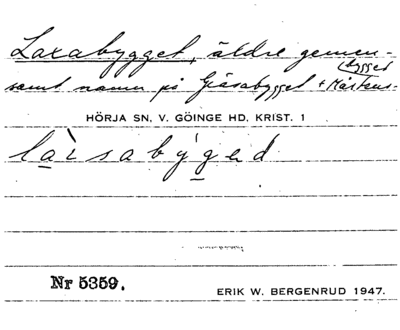 Laxabygget, äldre gemen-
samt namn på Gåsabygget + Mårtens-
bygget
HÖRJA SN, V. GÖINGE HD, KRIST. 1
làrsabýged
Nr 5359.
ERIK W. BERGENRUD 1947.